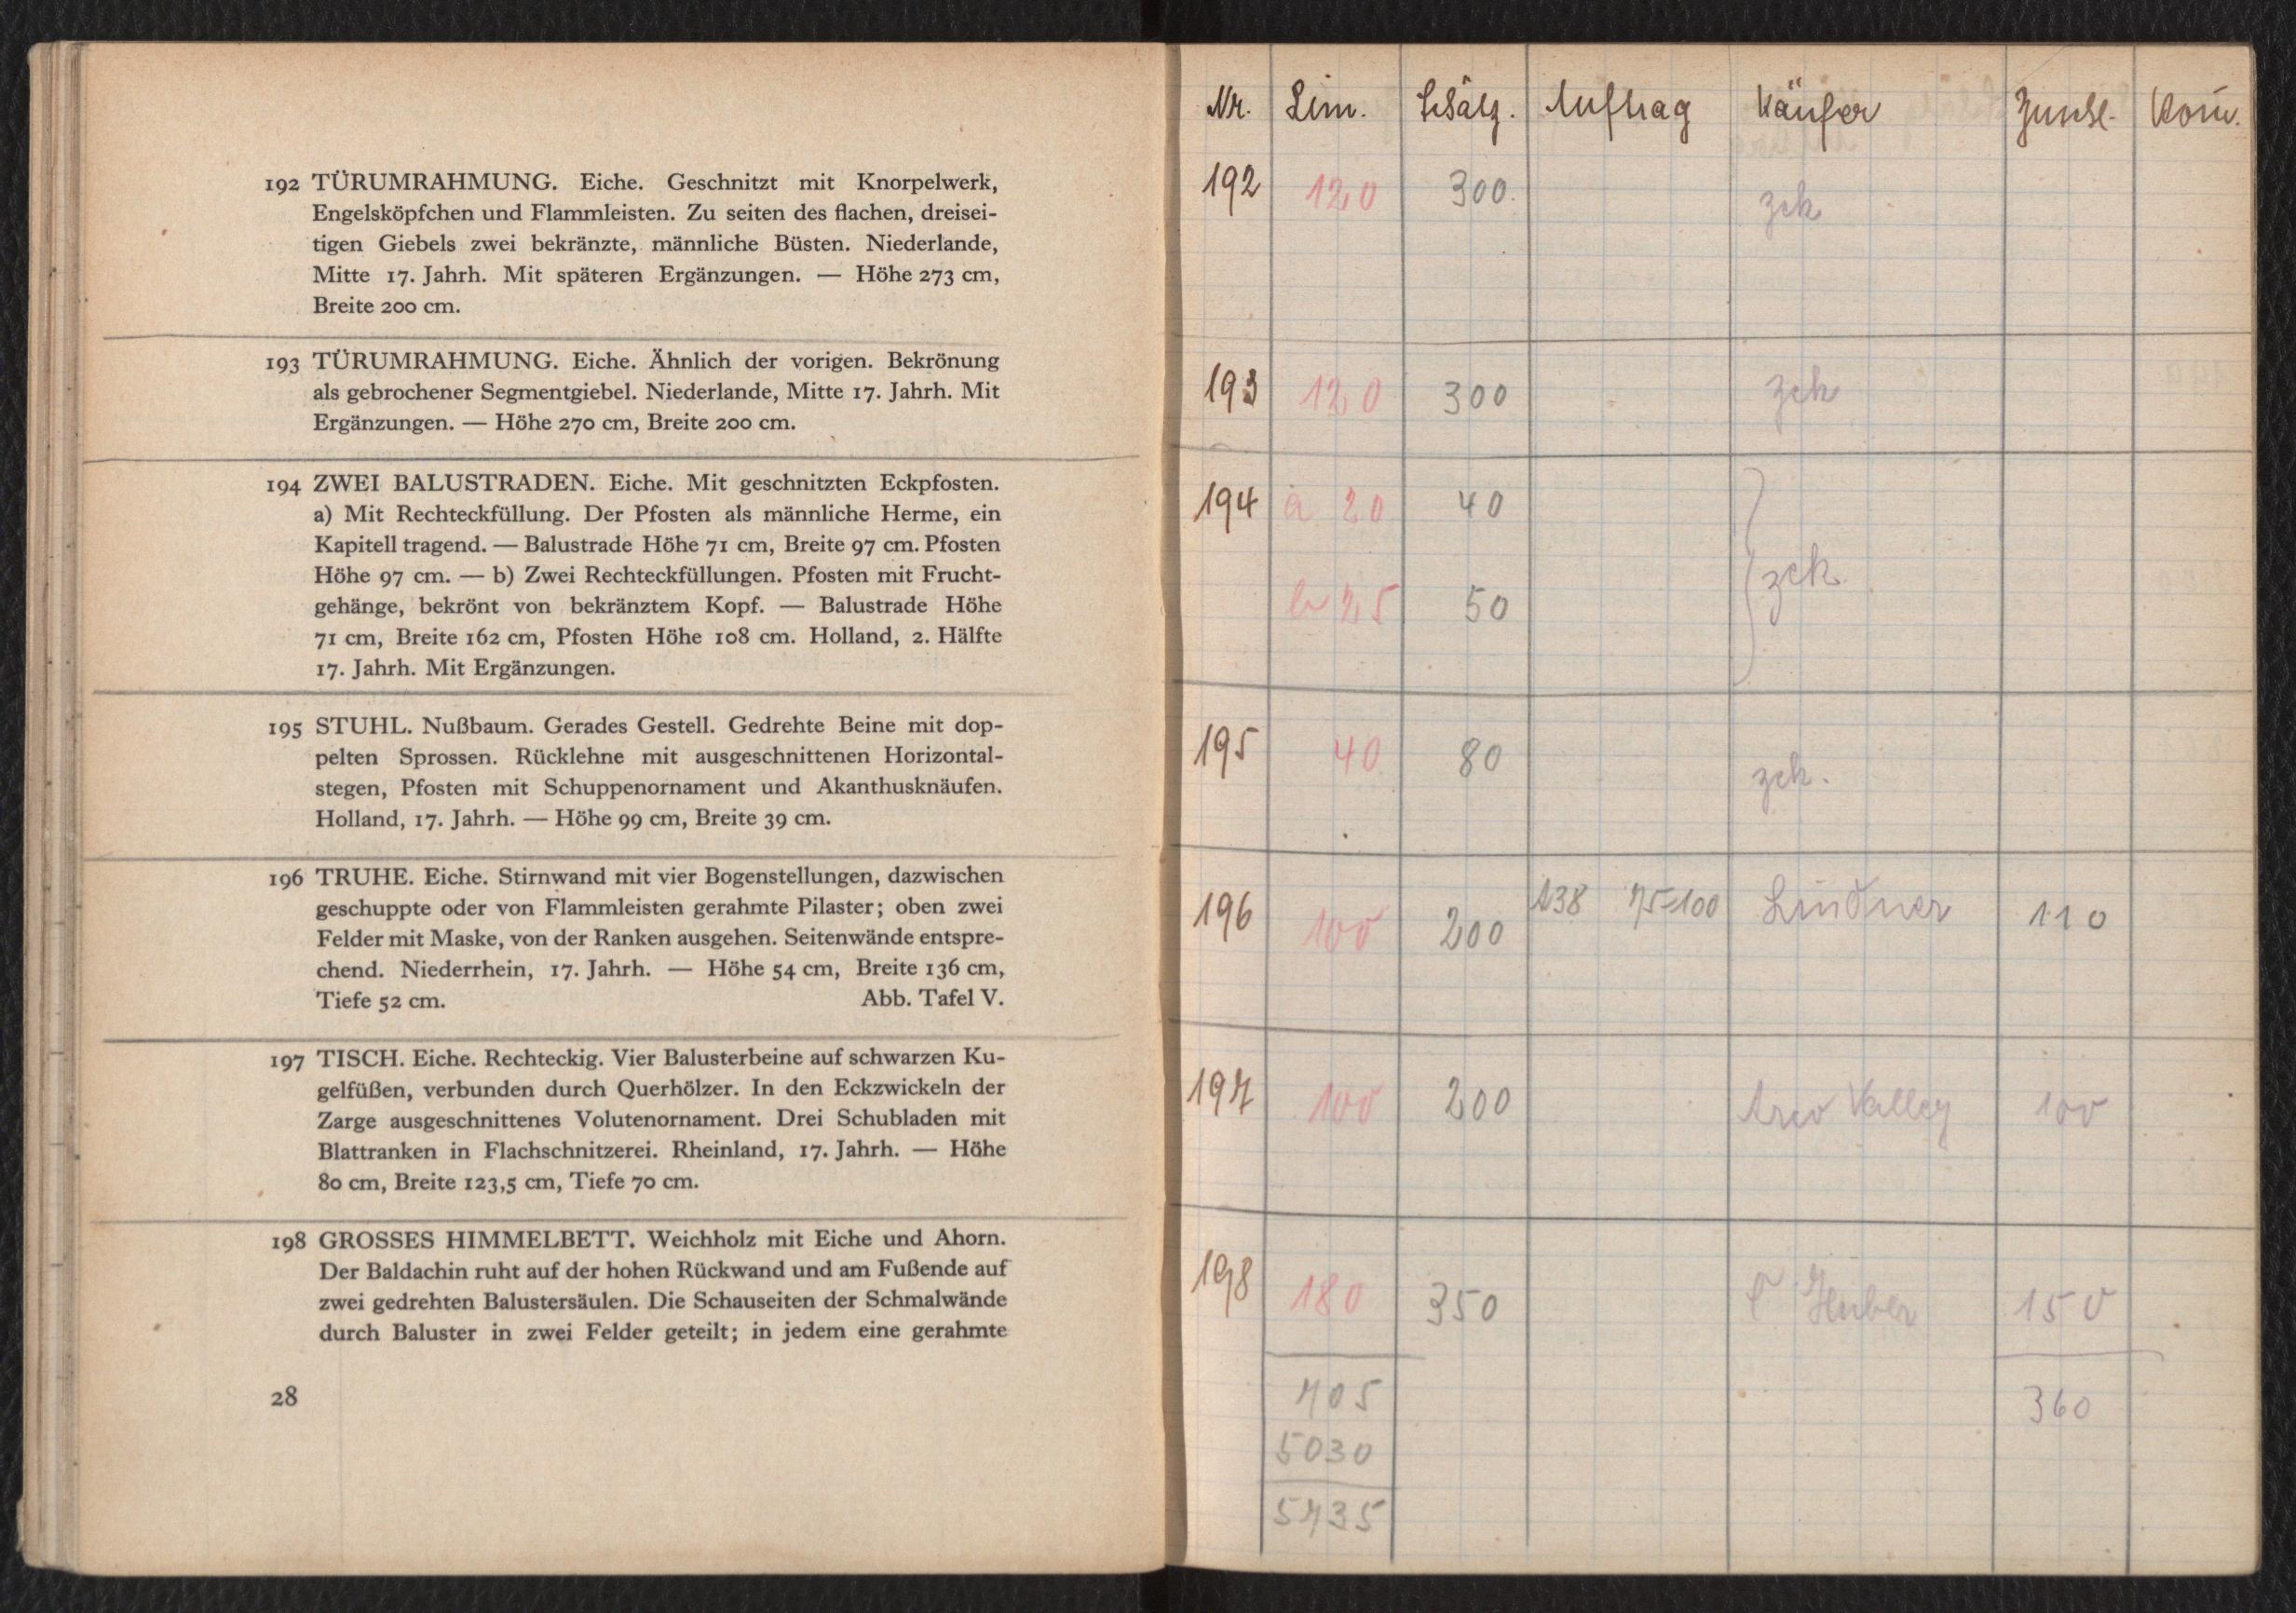 192 TÜRUMRAHMUNG. Eiche. Geschnitzt mit Knorpelwerk,
Engelsköpfchen und Flammleisten. Zu seiten des flachen, dreisei-
tigen Giebels zwei bekränzte, männliche Büsten. Niederlande,
Mitte 17. Jahrh. Mit späteren Ergänzungen. — Höhe 273 cm,
Breite 200 cm.
193 TÜRUMRAHMUNG. Eiche. Ähnlich der vorigen. Bekrönung
als gebrochener Segmentgiebel. Niederlande, Mitte 17. Jahrh. Mit
Ergänzungen. — Höhe 270 cm, Breite 200 cm.
194 ZWEI BALUSTRADEN. Eiche. Mit geschnitzten Eckpfosten.
a) Mit Rechteckfüllung. Der Pfosten als männliche Herme, ein
Kapitell tragend. — Balustrade Höhe 71 cm, Breite 97 cm. Pfosten
Höhe 97 cm. — b) Zwei Rechteckfüllungen. Pfosten mit Frucht-
gehänge, bekrönt von bekränztem Kopf. — Balustrade Höhe
71 cm, Breite 162 cm, Pfosten Höhe 108 cm. Holland, 2. Hälfte
17. Jahrh. Mit Ergänzungen.
195 STUHL. Nußbaum. Gerades Gestell. Gedrehte Beine mit dop-
pelten Sprossen. Rücklehne mit ausgeschnittenen Horizontal-
stegen, Pfosten mit Schuppenornament und Akanthusknäufen.
Holland, 17. Jahrh. — Höhe 99 cm, Breite 39 cm.
196 TRUHE. Eiche. Stirnwand mit vier Bogenstellungen, dazwischen
geschuppte oder von Flammleisten gerahmte Pilaster; oben zwei
Felder mit Maske, von der Ranken ausgehen. Seitenwände entspre-
chend. Niederrhein, 17. Jahrh. — Höhe 54 cm, Breite 136 cm,
Tiefe 52 cm. Abb. Tafel V.
197 TISCH. Eiche. Rechteckig. Vier Balusterbeine auf schwarzen Ku-
gelfüßen, verbunden durch Querhölzer. In den Eckzwickeln der
Zarge ausgeschnittenes Volutenornament. Drei Schubladen mit
Blattranken in Flachschnitzerei. Rheinland, 17. Jahrh. — Höhe
80 cm, Breite 123,5 cm, Tiefe 70 cm.
198 GROSSES HIMMELBETT. Weichholz mit Eiche und Ahorn.
Der Baldachin ruht auf der hohen Rückwand und am Fußende auf
zwei gedrehten Balustersäulen. Die Schauseiten der Schmalwände
durch Baluster in zwei Felder geteilt; in jedem eine gerahmte
28
Nr. Lim. Schätz. Auftrag Käufer Zuschl. Kom.
192 120 300 zck
193 120 300 zck
194 a 20 40
b 25 50 zck
195 40 80 zck.
196 100 200 138 75-100 Lindner 110
197 100 200 Arco Valley 100
198 180 350 Huber 150
705 360
5030
5735